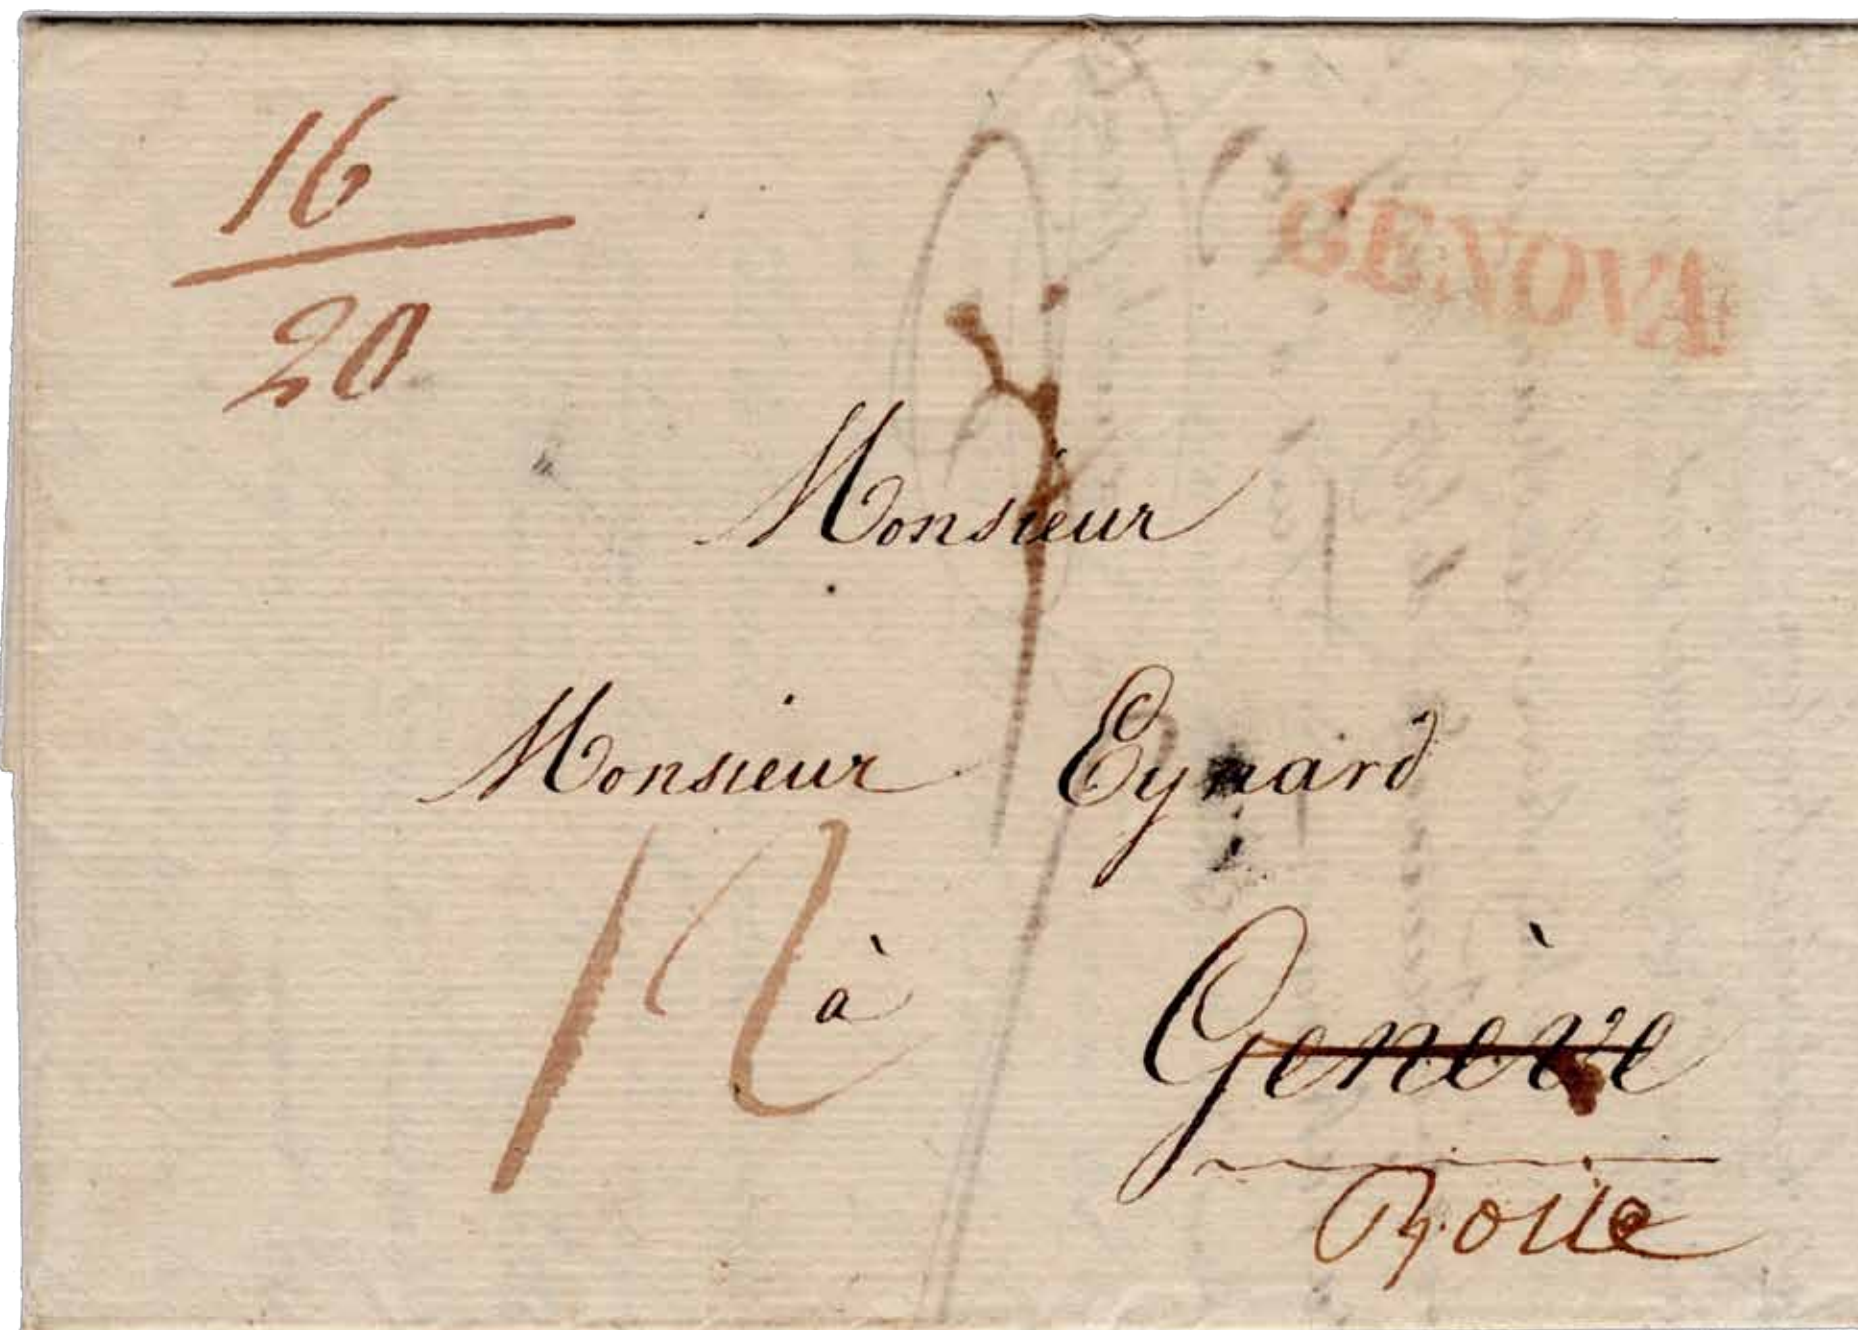 16
20
GENOVA
Monsieur
Monsieur Eynard
12
à Genève
Rolle